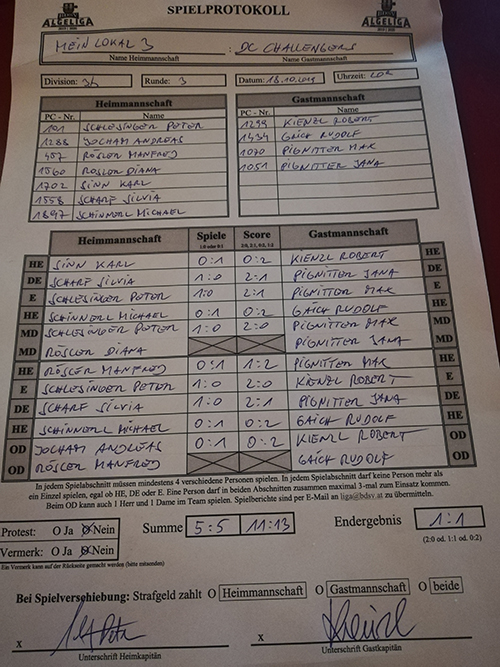 ALGELIGA SPIELPROTOKOLL ALGELIGA
MEIN LOKAL 3 : DC CHALLENGERS
Name Heimmannschaft Name Gastmannschaft
Division: 3b Runde: 3 Datum: 18.10.2019 Uhrzeit:
Heimmannschaft Gastmannschaft
PC - Nr. Name PC - Nr. Name
101 SCHLESINGER PETER 1299 KIENZL ROBERT
1288 JOCHAM ANDREAS 1434 GAICH RUDOLF
457 RÖSLER MANFRED 1070 PIGNITTER MAX
1560 RÖSLER DIANA 1051 PIGNITTER JANA
1702 SINN KARL
1558 SCHARF SILVIA
1897 SCHINNERL MICHAEL
Heimmannschaft Spiele Score Gastmannschaft
1:0 oder 0:1 2:0, 2:1, 0:2, 1:2
HE SINN KARL 0:1 0:2 KIENZL ROBERT HE
DE SCHARF SILVIA 1:0 2:1 PIGNITTER JANA DE
E SCHLESINGER PETER 1:0 2:1 PIGNITTER MAX E
HE SCHINNERL MICHAEL 0:1 0:2 GAICH RUDOLF HE
MD SCHLESINGER PETER 1:0 2:0 PIGNITTER MAX MD
MD RÖSLER DIANA PIGNITTER JANA MD
HE RÖSLER MANFRED 0:1 1:2 PIGNITTER MAX HE
E SCHLESINGER PETER 1:0 2:0 KIENZL ROBERT E
DE SCHARF SILVIA 1:0 2:1 PIGNITTER JANA DE
HE SCHINNERL MICHAEL 0:1 0:2 GAICH RUDOLF HE
OD JOCHAM ANDREAS 0:1 0:2 KIENZL ROBERT OD
OD RÖSLER MANFRED GAICH RUDOLF OD
In jedem Spielabschnitt müssen mindestens 4 verschiedene Personen spielen. In jedem Spielabschnitt darf keine Person mehr als
ein Einzel spielen, egal ob HE, DE oder E. Eine Person darf in beiden Abschnitten zusammen maximal 3-mal zum Einsatz kommen.
Beim OD kann auch 1 Herr und 1 Dame im Team spielen. Spielberichte sind per E-Mail an liga@bdsv.at zu übermitteln.
Protest: O Ja O Nein Summe 5:5 11:13 Endergebnis 1:1
Vermerk: O Ja O Nein (2:0 od. 1:1 od. 0:2)
Ein Vermerk kann auf der Rückseite gemacht werden (bitte mitsenden)
Bei Spielverschiebung: Strafgeld zahlt O Heimmannschaft O Gastmannschaft O beide
x x
Unterschrift Heimkapitän Unterschrift Gastkapitän